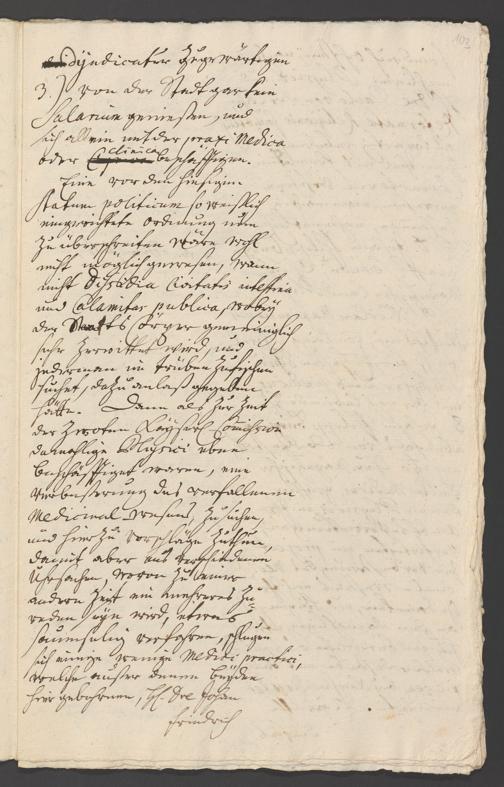 102
Syndicatur gegenwärtigen
3.) von der Stadt gar kein
Salarium geniessen, und
sich allein mit der praxi Medica
oder Clinica beschäfftigen.
Eine vor den hiesigen
statum politicum so weißlich
eingerichtete ordnung nun
zu überschreiten wäre wohl
nicht möglich gewesen, wann
nicht Dissidia Civitatis intestina
und Calamitas publica, wobey
der Staats Cörper gemeiniglich
sehr zerrüttet wird, und
jederman im trüben zu fischen
suchet, dazu anlaß gegeben
hätte. Dann als zur Zeit
der zweyten Kayserl. Commission
damahlige Physici eben
beschäfftiget waren, eine
verbesserung des verfallenen
Medicinal wesens zu suchen,
und hierzu vorschläge zu thun,
damit aber aus verschiedenen
Uhrsachen, wovon zu einer
andern Zeit ein mehreres zu
reden seyn wird, etwas
saumselig verfahren, schlugen
sich einige wenige Medici practici,
welche ausser denen beyden
hier gebohrnen, HH. Dre Johan
Friedrich